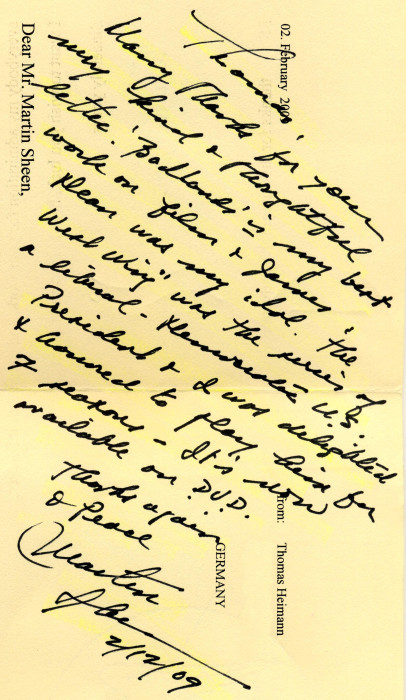 from: Thomas Heimann
GERMANY
02. February 200
Dear Mr. Martin Sheen,
Thomas,
Many Thanks for your
very kind & thoughtful
letter. 'Badlands' is my best
work on film & James
Dean was my idol. "The
West Wing" was the series of
a liberal-Democratic U.S.
President & I was delighted
& honored to play him for
7 seasons - It's now
available on D.V.D.
Thanks again
& Peace
Martin
Sheen
2/12/09